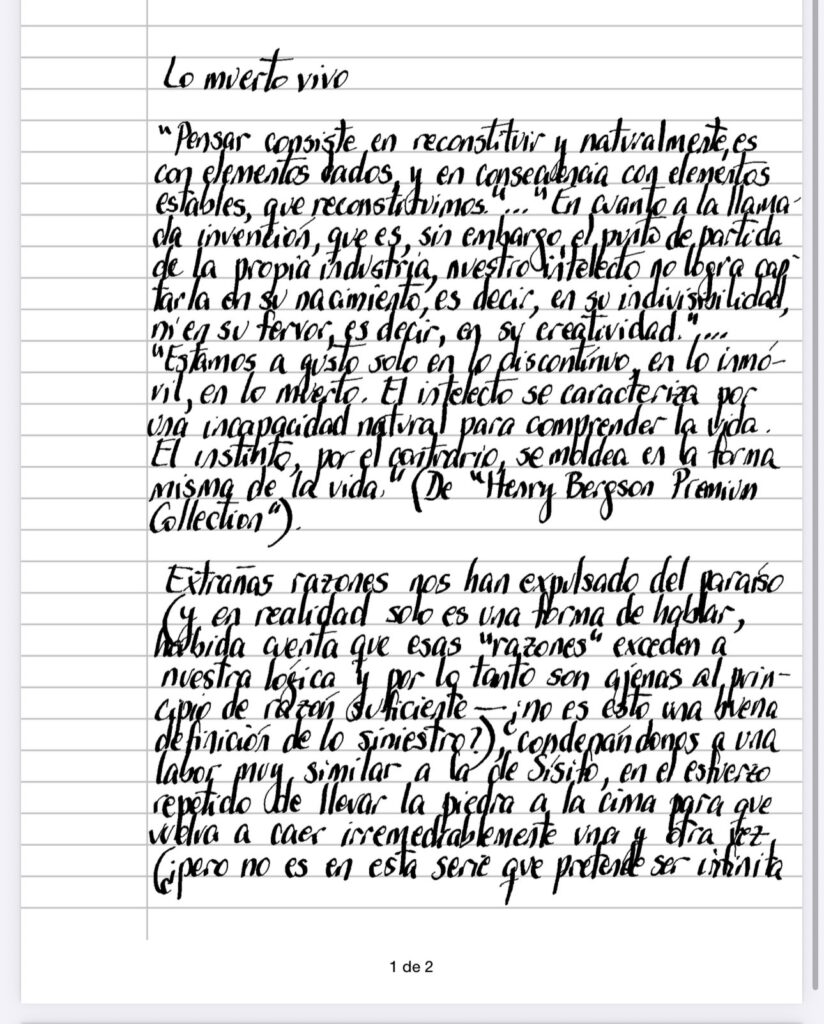 Lo muerto vivo
"Pensar consiste en reconstituir y naturalmente, es
con elementos dados, y en consecuencia con elementos
estables, que reconstituimos."..."En cuanto a la llama-
da invención, que es, sin embargo, el punto de partida
de la propia industria, nuestro intelecto no logra cap-
tarla en su nacimiento, es decir, en su indivisibilidad,
ni en su fervor, es decir, en su creatividad."...
"Estamos a gusto solo en lo discontinuo, en lo inmó-
vil, en lo muerto. El intelecto se caracteriza por
una incapacidad natural para comprender la vida.
El instinto, por el contrario, se moldea en la forma
misma de la vida." (De "Henry Bergson Premium
Collection").
Extrañas razones nos han expulsado del paraíso
(y en realidad solo es una forma de hablar,
habida cuenta que esas "razones" exceden a
nuestra lógica y por lo tanto son ajenas al prin-
cipio de razón suficiente — ¿no es esto una buena
definición de lo siniestro?), condenándonos a una
labor muy similar a la de Sísifo, en el esfuerzo
repetido de llevar la piedra a la cima para que
vuelva a caer irremediablemente una y otra vez
(¿pero no es en esta serie que pretende ser infinita
1 de 2